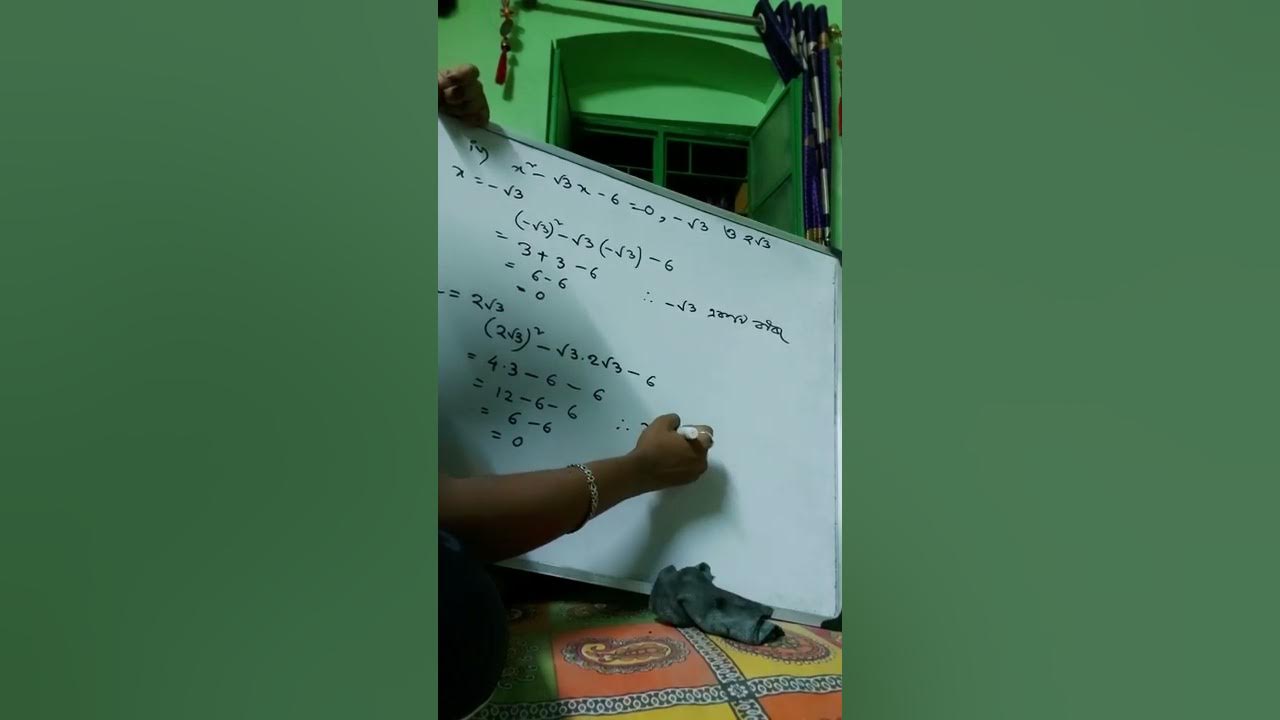 iv) x² - √3 x - 6 = 0, -√3 ও 2√3
x = -√3
(-√3)² - √3 (-√3) - 6
= 3 + 3 - 6
= 6 - 6
= 0 ∴ -√3 সমাধান
= 2√3
(2√3)² - √3 . 2√3 - 6
= 4.3 - 6 - 6
= 12 - 6 - 6
= 6 - 6 ∴
= 0